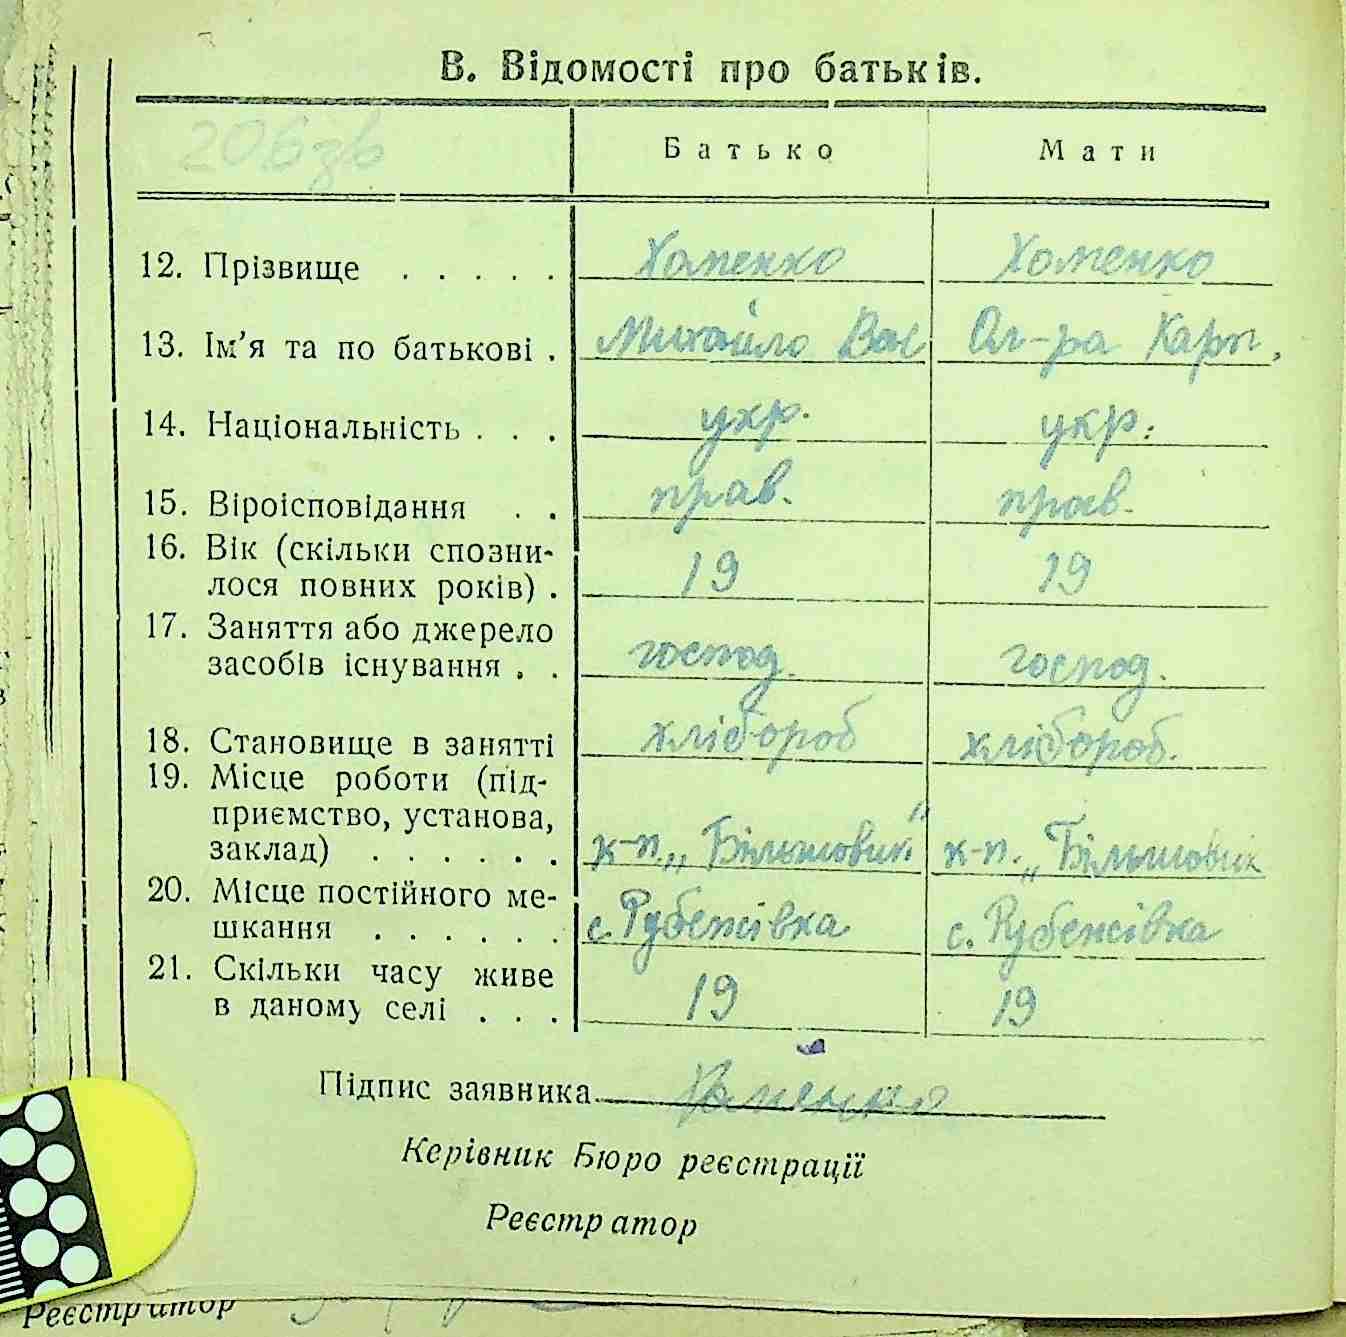 В. Відомості про батьків.
Батько Мати
12. Прізвище . . . . . Хоменко Хоменко
13. Ім'я та по батькові . Михайло Вас Ол-ра Карп.
14. Національність . . . укр. укр.
15. Віроісповідання . . прав. прав.
16. Вік (скільки спозни-
лося повних років) . 19 19
17. Заняття або джерело
засобів існування . . господ. господ.
18. Становище в занятті хлібороб хлібороб.
19. Місце роботи (під-
приємство, установа,
заклад) . . . . . . к-п. „Більшовик" к-п. „Більшовик
20. Місце постійного ме-
шкання . . . . . . с. Рубежівка с. Рубежівка
21. Скільки часу живе
в даному селі . . . 19 19
Підпис заявника Хоменко
Керівник Бюро реєстрації
Реєстратор
Реєстратор